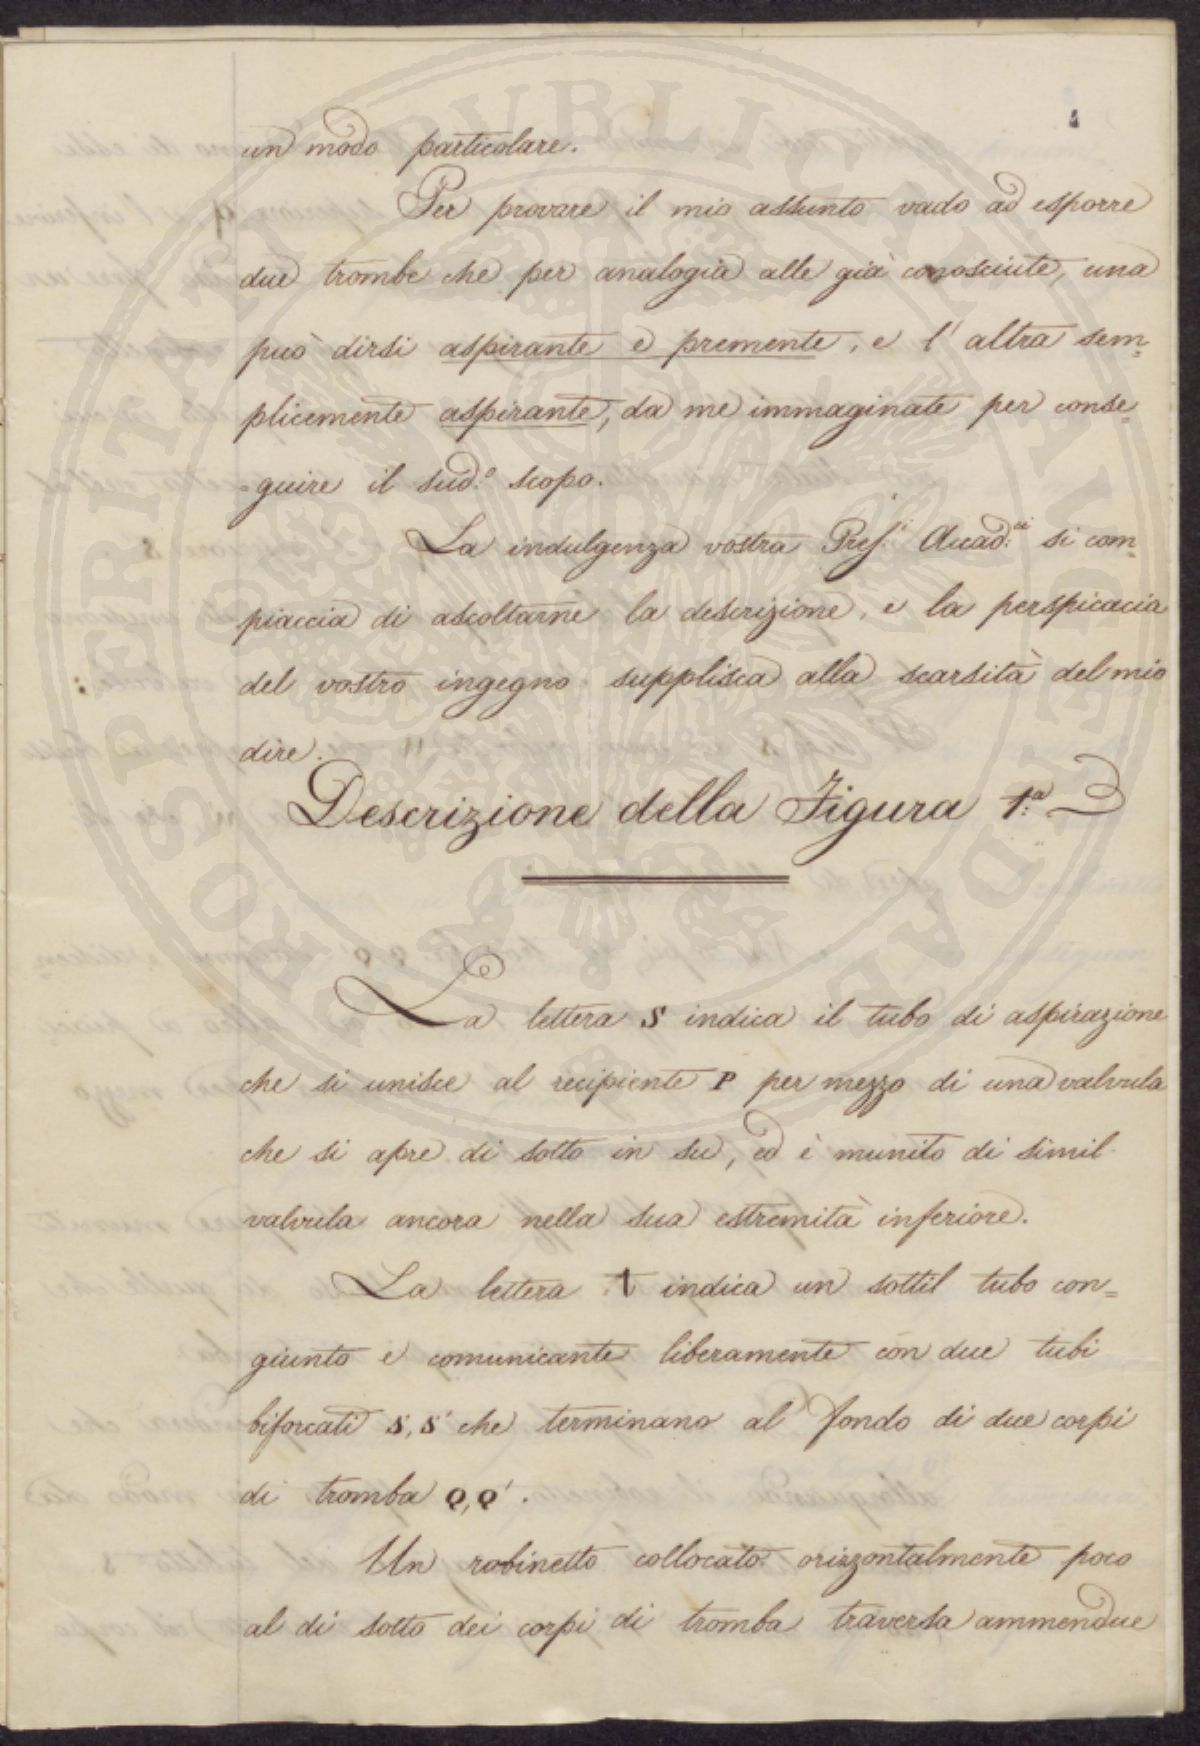 un modo particolare.
Per provare il mio assunto vado ad esporre
due trombe che per analogia alle già conosciute, una
può dirsi aspirante e premente, e l'altra sem=
plicemente aspirante, da me immaginate per conse=
=guire il sud.º scopo.
La indulgenza vostra Pref.i Accad.ci si com=
piaccia di ascoltarne la descrizione, e la perspicacia
del vostro ingegno supplisca alla scarsità del mio
dire.
Descrizione della Figura 1.ª
La lettera S indica il tubo di aspirazione
che si unisce al recipiente P per mezzo di una valvula
che si apre di sotto in su, ed è munito di simil
valvula ancora nella sua estremità inferiore.
La lettera indica un sottil tubo con=
giunto e comunicante liberamente con due tubi
biforcati S, S' che terminano al fondo di due corpi
di tromba Q, Q'.
Un robinetto collocato orizzontalmente poco
al di sotto dei corpi di tromba traversa ammendue
PROSPERITATI PUBLICAE AUGENDAE